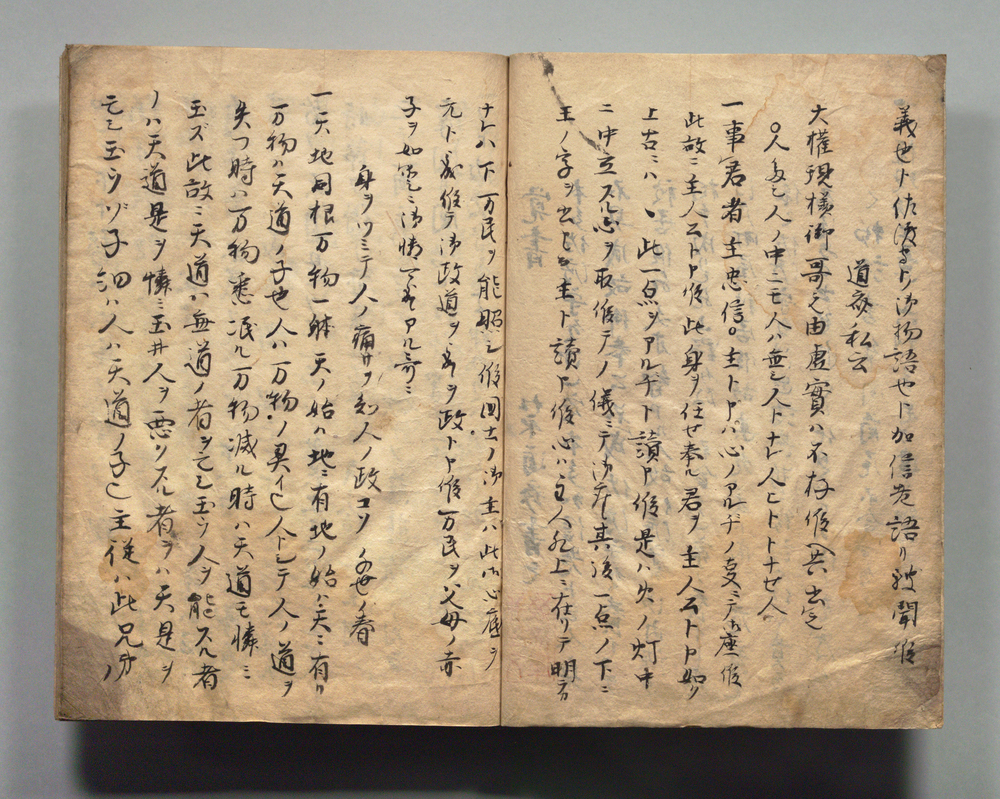 義也ト佐渡ヨリ御物語也ト加信先語リ被聞候
道家私云
大權現様御哥之由虚實ハ不存候ヘ共出之
人多シ人ノ中ニモ人ハ無シ人トナレ人ヒトトナセ人
一事君者主忠信○主トハ心ノアルヂノ支ニテ御座候
此故ニ主人公ト申候此身ヲ任セ奉ル君ヲ主人公ト申如ク
上古ニハ丶此一点ヲアルヂト讀申候是ハ火ノ灯中
ニ中立スル心ヲ取候テノ儀ニテ御座候其後一点ノ下ニ
王ノ字ヲ出シテ主ト讀申候心ハ主人ハ上ニ在リテ明ニ
ナレハ下万民ヲ能照シ候国土ノ御主ハ此御心底ヲ
元ト被成候テ御政道ヲ政ト申候万民ヲ父母ノ赤
子ヲ如ク御憐アル哥ニ
身ヲツミテ人ノ痛サヲ知人ノ政コソ ノ春
一天地同根万物一躰天ノ始ハ地ニ有地ノ始ハ天ニ有リ
万物ハ天道ノ子也人ハ万物ノ シテ人ノ道ヲ
失フ時ハ万物悉泯ル万物滅ル時ハ天道モ憐ミ
玉ズ此故ニ天道ハ無道ノ者ヲ 玉ウ人ヲ能スル者
ノハ天道是ヲ憐ミ玉井人ヲ悪クスル者ヲハ天是ヲ
玉ウゾ子細ハ人ハ天道ノ子也主従ハ此兄弟